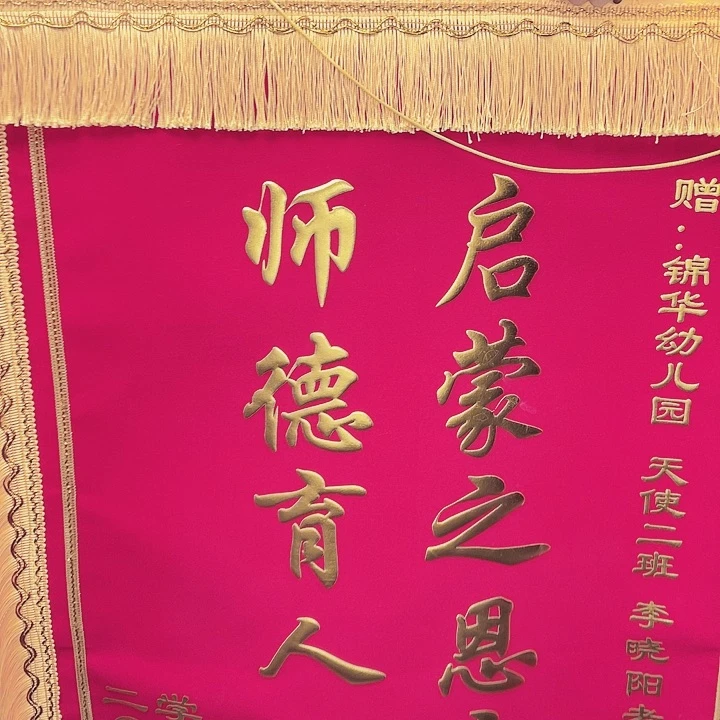 赠：锦华幼儿园 天使二班 李晓阳老
启蒙之恩
师德育人
学
二